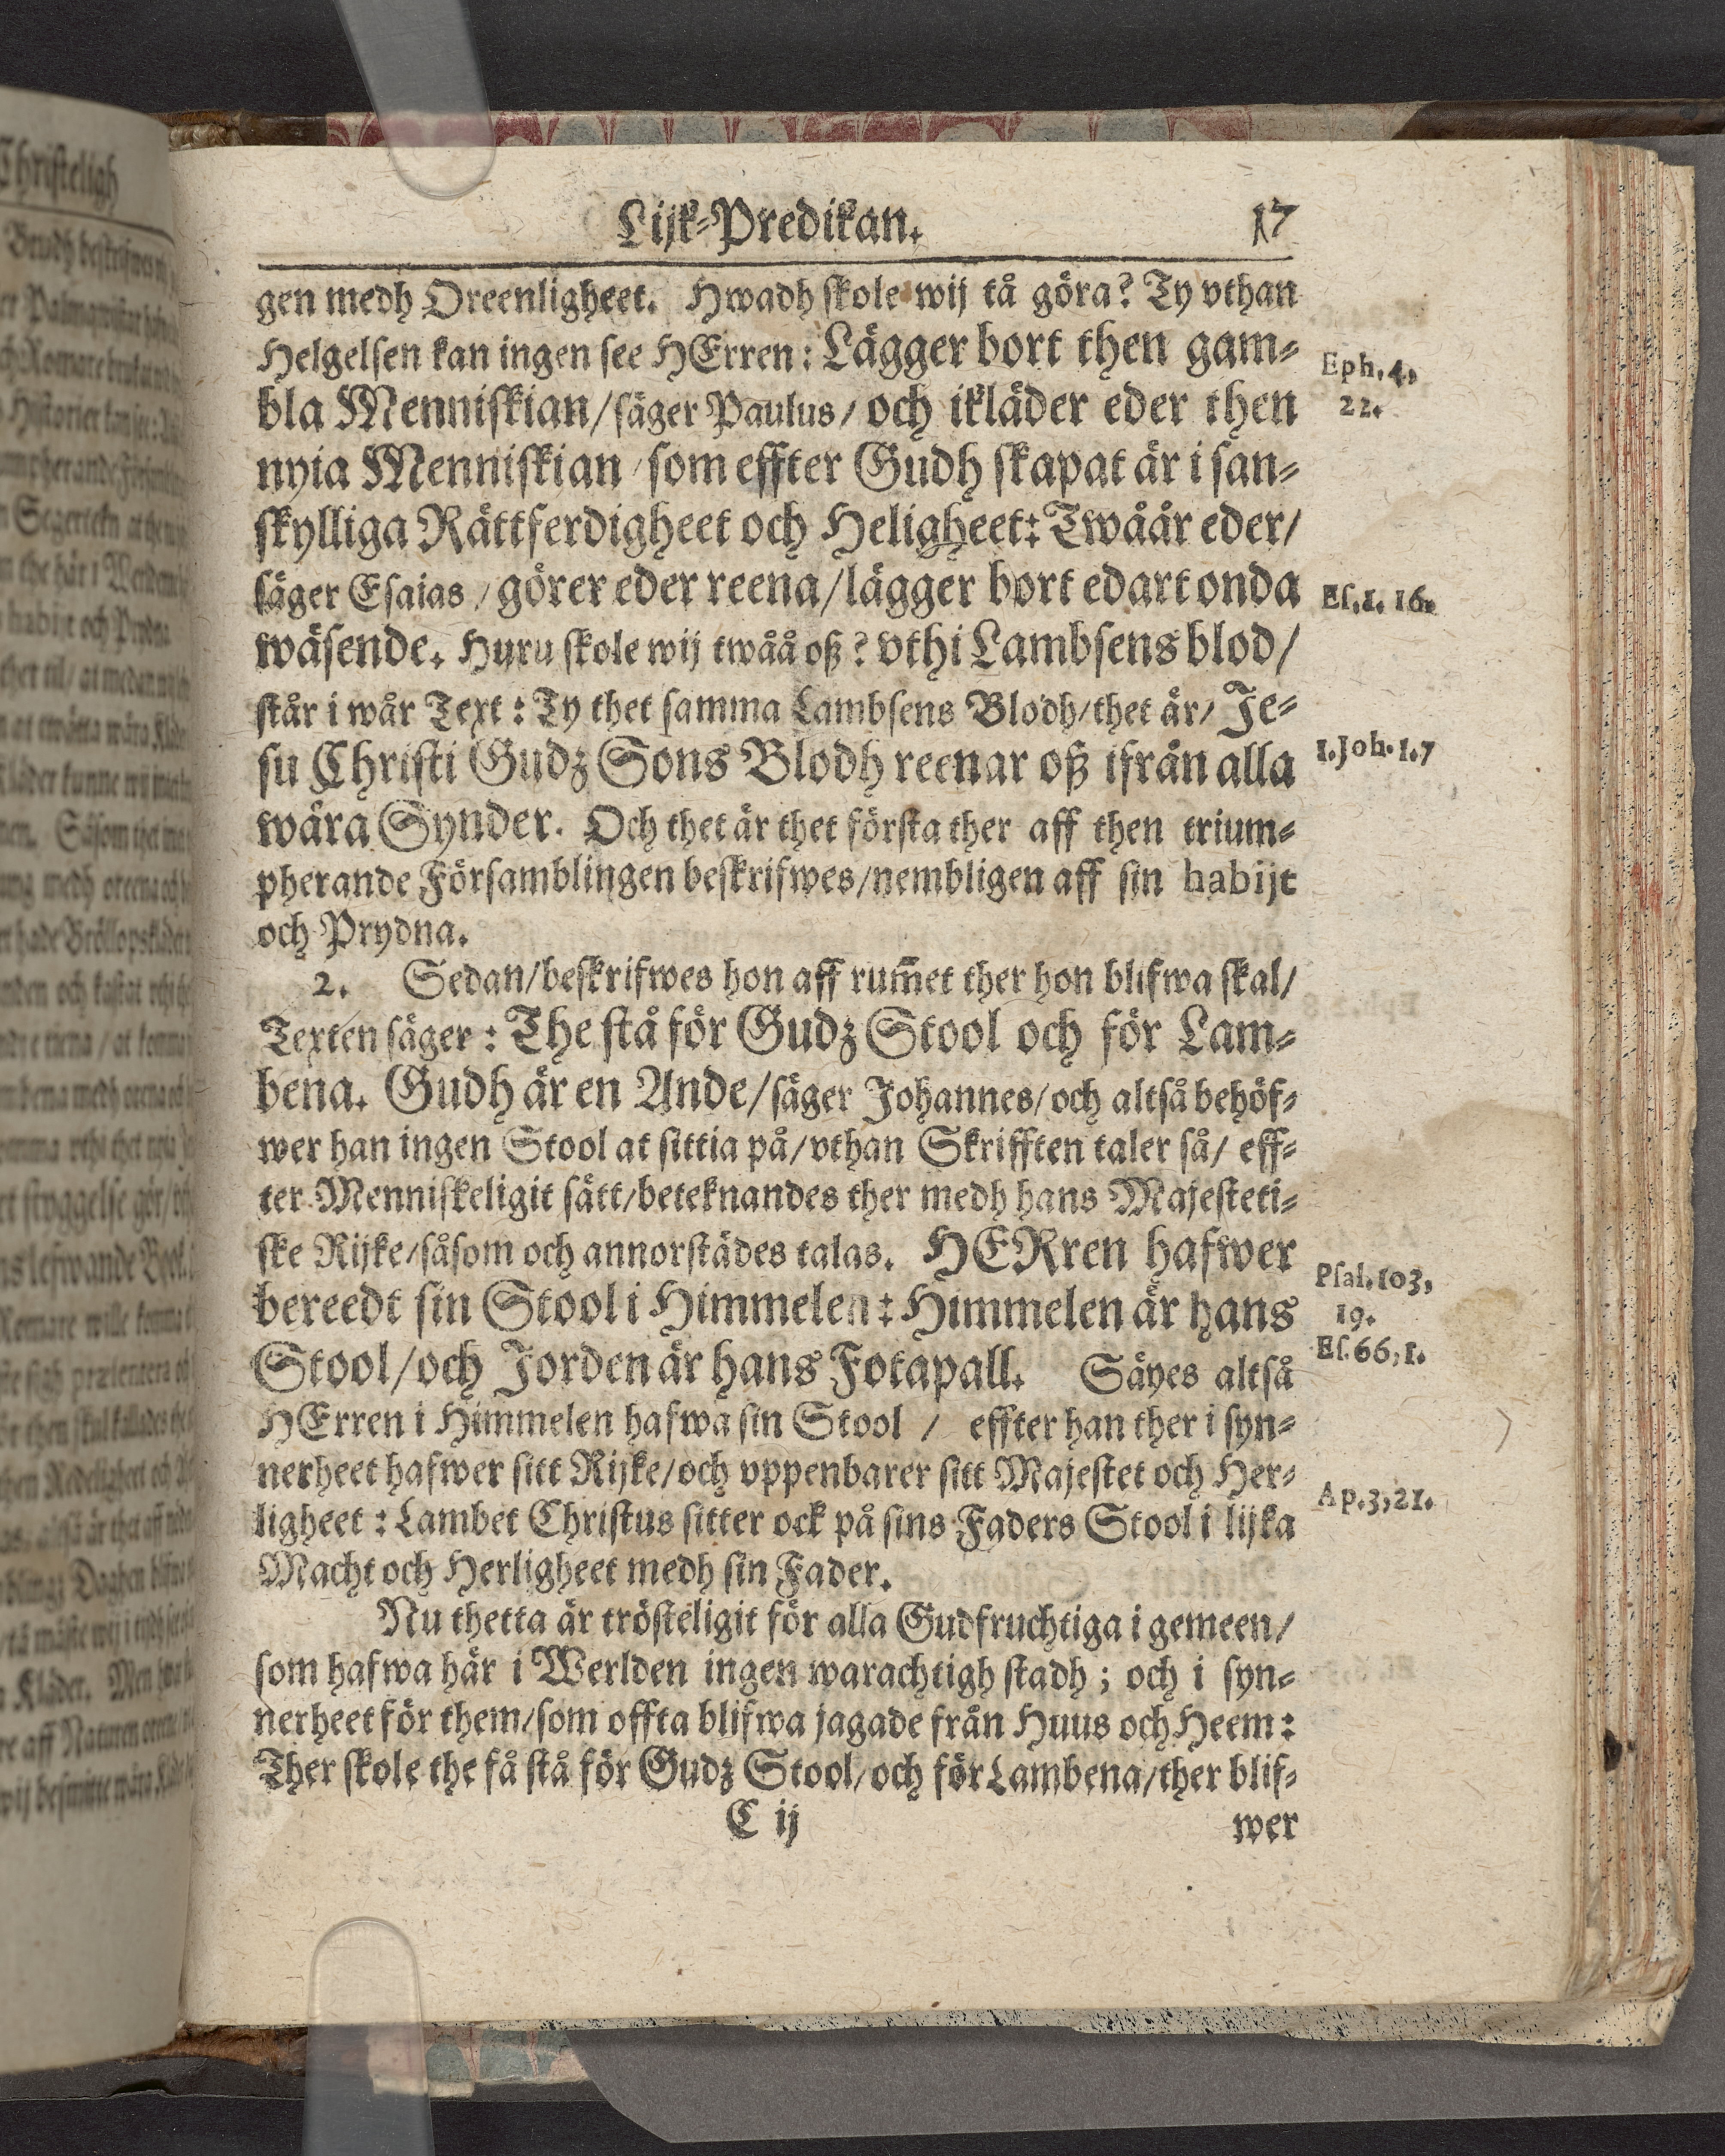 Lijk-Predikan. 17
gen medh Oreenligheet. Hwadh skole wij tå göra? Ty vthan
Helgelsen kan ingen see HErren: Lägger bort then gam-
Eph. 4,
22.
bla Menniskian/ säger Paulus/ och ikläder eder then
nyia Menniskian / som effter Gudh skapat är i san-
skylliga Rättferdigheet och Heligheet: Twåår eder/
säger Esaias / görer eder reena/ lägger bort edart onda
Es. 1. 16.
wäsende. Huru skole wij twåå oß? vthi Lambsens blod/
står i wår Text: Ty thet samma Lambsens Blodh/ thet är/ Je-
su Christi Gudz Sons Blodh reenar oß ifrån alla
1. Joh. 1. 7
wära Synder. Och thet är thet första ther aff then trium-
pherande Församblingen beskrifwes/ nembligen aff sin habijt
och Prydna.
2. Sedan/ beskrifwes hon aff rum̃et ther hon blifwa skal/
Texten säger: The stå för Gudz Stool och för Lam-
bena. Gudh är en Ande/ säger Johannes/ och altså behöf-
wer han ingen Stool at sittia på/ vthan Skrifften taler så/ eff-
ter Menniskeligit sätt/ beteknandes ther medh hans Majesteti-
ske Rijke/ såsom och annorstädes talas. HERren hafwer
Psal. 103,
19.
bereedt sin Stool i Himmelen: Himmelen är hans
Stool/ och Jorden är hans Fotapall. Säyes altså
Es. 66, 1.
HErren i Himmelen hafwa sin Stool / effter han ther i syn-
nerheet hafwer sitt Rijke/ och vppenbarer sitt Majestet och Her-
ligheet: Lambet Christus sitter ock på sins Faders Stool i lijka
Ap. 3, 21.
Macht och Herligheet medh sin Fader.
Nu thetta är trösteligit för alla Gudfruchtiga i gemeen/
som hafwa här i Werlden ingen warachtigh stadh; och i syn-
nerheet för them/ som offta blifwa jagade från Huus och Heem:
Ther skole the få stå för Gudz Stool/ och för Lambena/ ther blif-
C ij wer